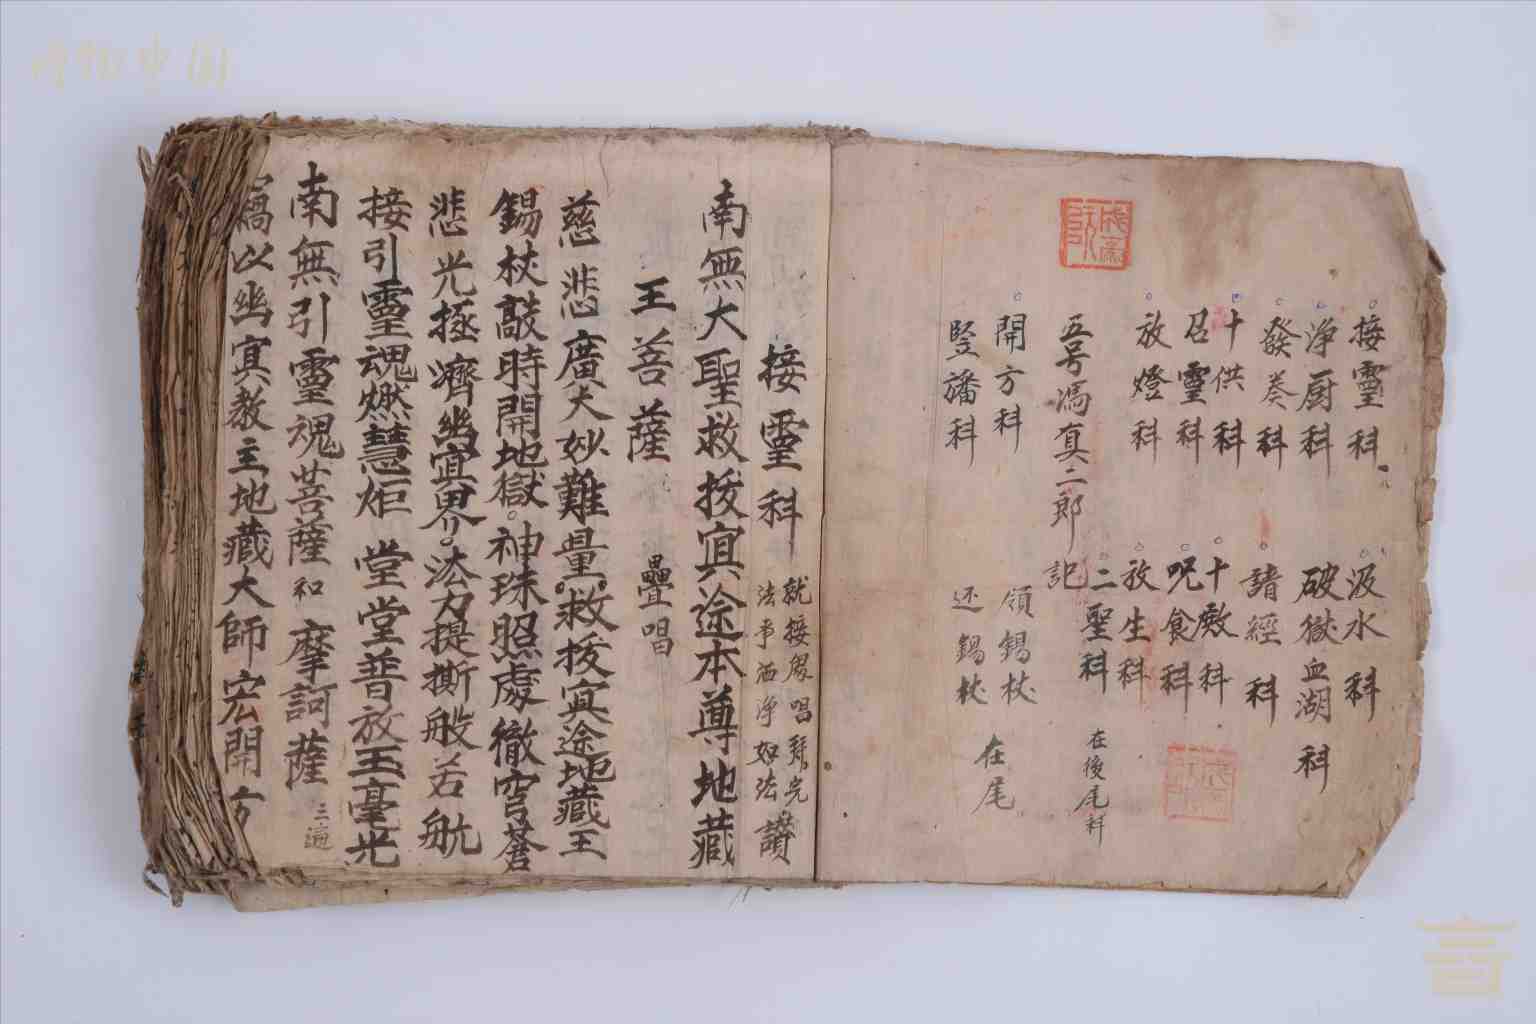 接靈科　汲水科
淨厨科　破獄血湖科
發奏科　諸經科
十供科　十殿科
召靈科　呪食科
放燈科　放生科
二聖科　在後尾科
五号馮真二郎記
開方科　領錫杖
豎旛科　还錫杖
在尾
接靈科
就接 唱 完
法事洒淨如法
讚
南無大聖救拔冥途本尊地藏
王菩薩　疊唱
慈悲廣大妙難量。救拔冥途地藏王
錫杖敲時開地獄。神珠照處徹穹蒼
悲光拯濟幽冥界。法力提撕般若航
接引靈魂燃慧炬　堂堂普放玉毫光
南無引靈魂菩薩　和　摩訶薩　三遍
竊以幽冥教主地藏大師宏開方